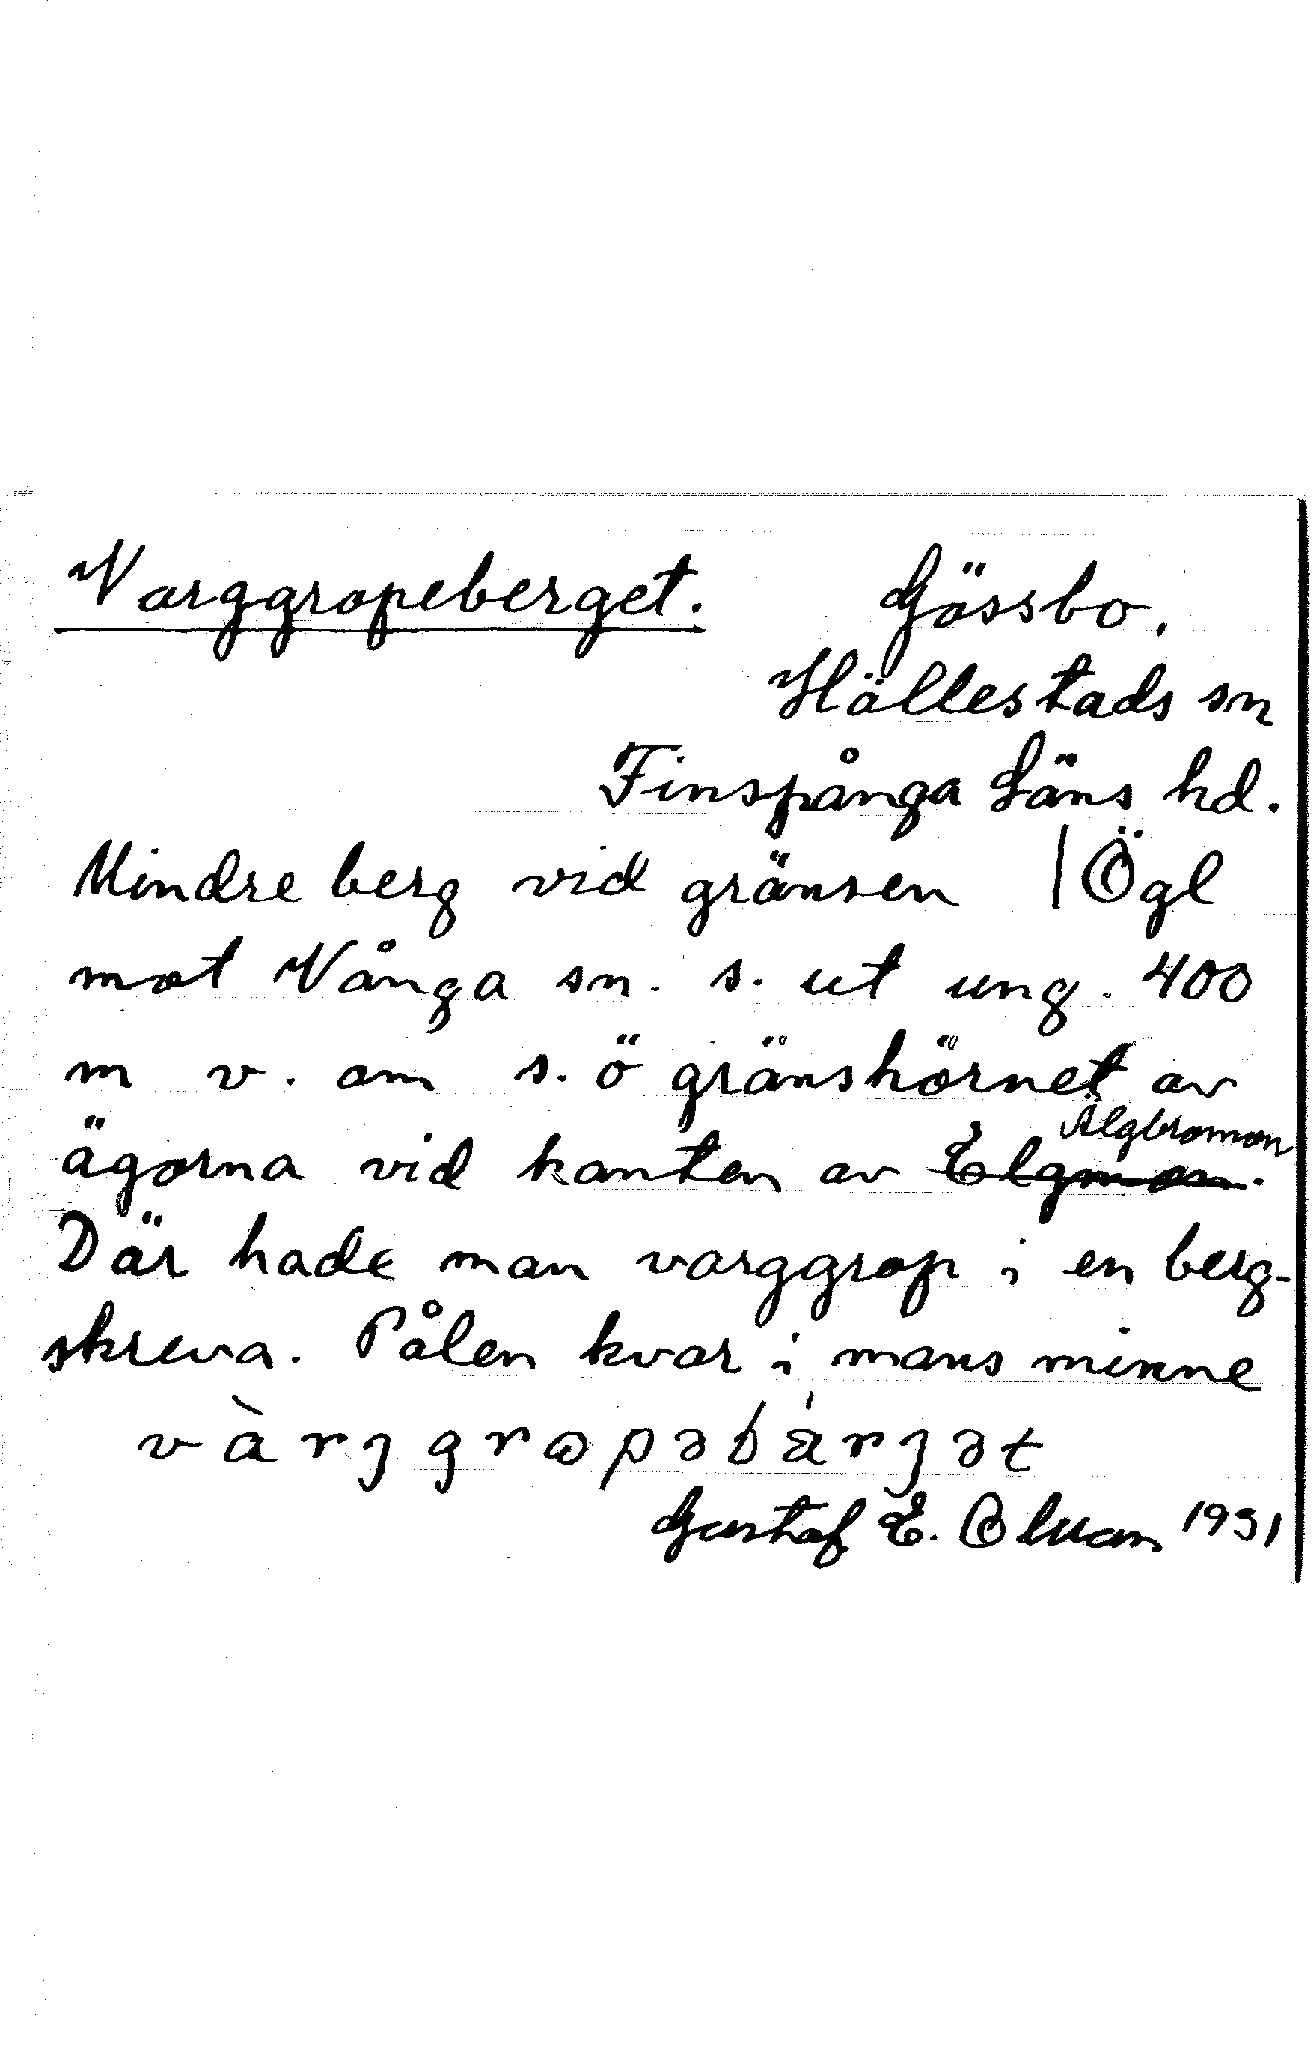 Varggropeberget. Gössbo.
Hällestads sn
Finspånga Läns hd.
Mindre berg vid gränsen | Ögl
mot Vånga sn. s. ut ung. 400
m v. om s. ö gränshörnet av
Älgbromon
ägorna vid kanten av Elgmon.
Där hade man varggrop i en berg-
skreva. Pålen kvar i mans minne
vàrjgropəbárjət
Gustaf E. Olson 1931